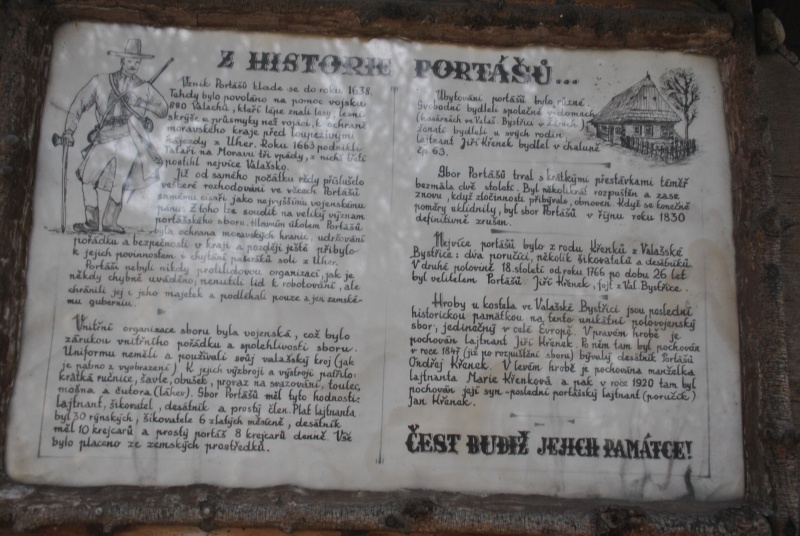 Z HISTORIE PORTÁŠŮ...
Vznik Portášů klade se do roku 1638.
Tehdy bylo povoláno na pomoc vojsku
Valachů, kteří lépe znali lesy, lesní
skrýše a průsmyky než vojáci, k ochraně
moravského kraje před loupežnými
nájezdy z Uher. Roku 1663 podnikli
Tataři na Moravu tři vpády, z nichž třetí
postihl nejvíce Valašsko.
Již od samého počátku vždy příslušelo
veškeré rozhodování ve věcech Portášů
samému císaři jako nejvyššímu vojenskému
pánu. Z toho lze soudit na veliký význam
portášského sboru. Hlavním úkolem Portášů
byla ochrana moravských hranic, udržování
pořádku a bezpečnosti v kraji a později ještě přibylo
k jejich povinnostem i chytání pašeráků soli z Uher.
Portáši nebyli nikdy protilidovou organizací, jak je
někdy chybně uváděno, nenutili lid k robotování, ale
chránili jej i jeho majetek a podléhali pouze a jen zemské-
mu guberniu.
Vnitřní organizace sboru byla vojenská, což bylo
zárukou vnitřního pořádku a spolehlivosti sboru.
Uniformu neměli a používali svůj valašský kroj (jak
je patno z vyobrazení). K jejich výzbroji a výstroji patřilo:
krátká ručnice, šavle, obušek, provaz na svazování, toulec,
mošna a čutora (láhev). Sbor Portášů měl tyto hodnosti:
lajtnant, šikovatel, desátník a prostý člen. Plat lajtnanta
byl 30 rýnských, šikovatele 6 zlatých měsíčně, desátník
měl 10 krejcarů a prostý portáš 8 krejcarů denně. Vše
bylo placeno ze zemských prostředků.
Ubytování portášů bylo různé.
Svobodní bydleli společně v domech
(kasárnách ve Valaš. Bystřici v Žárách),
ženatí bydleli u svých rodin
lajtnant Jiří Křenek bydlel v chalupě
čp. 63.
Sbor Portášů trval s krátkými přestávkami téměř
bezmála dvě století. Byl několikrát rozpuštěn a zase
znovu, když zločinnosti přibývalo, obnoven. Když se konečně
poměry uklidnily, byl sbor Portášů v říjnu roku 1830
definitivně zrušen.
Nejvíce portášů bylo z rodu Křenků z Valašské
Bystřice: dva poručíci, několik šikovatelů a desátníků.
V druhé polovině 18. století od roku 1766 po dobu 26 let
byl velitelem Portášů Jiří Křenek, fojt z Val. Bystřice.
Hroby u kostela ve Valašské Bystřici jsou poslední
historickou památkou na tento unikátní polovojenský
sbor, jedinečný v celé Evropě. V pravém hrobě je
pochován lajtnant Jiří Křenek. Po něm tam byl pochován
v roce 1847 (již po rozpuštění sboru) bývalý desátník Portášů
Ondřej Křenek. V levém hrobě je pochována manželka
lajtnanta Marie Křenková a pak v roce 1920 tam byl
pochován její syn-poslední portášský lajtnant (poručík)
Jan Křenek.
ČEST BUDIŽ JEJICH PAMÁTCE!